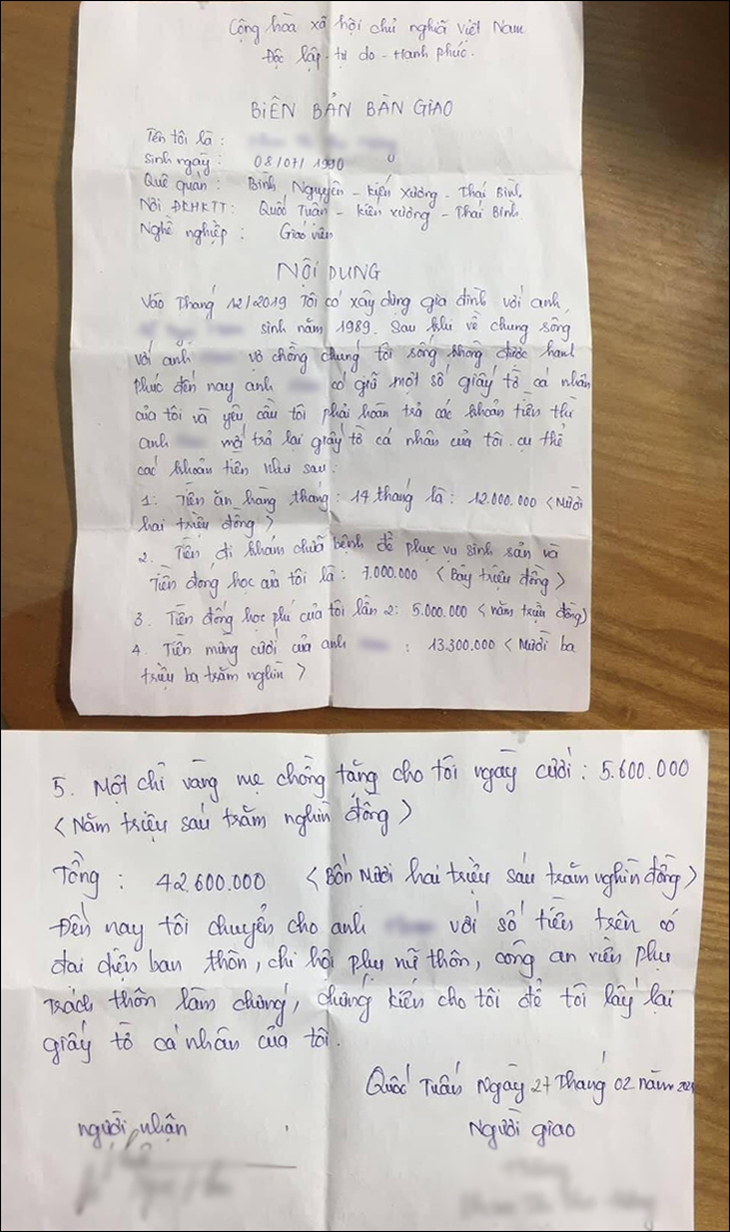 Cộng hòa xã hội chủ nghĩa Việt Nam
Độc lập - tự do - Hạnh phúc.
BIÊN BẢN BÀN GIAO
Tên tôi là :
Sinh ngày : 08/07/1990
Quê quán : Bình Nguyên - Kiến Xương - Thái Bình
Nơi ĐKHKTT : Quốc Tuấn - Kiến Xương - Thái Bình
Nghề nghiệp : Giáo viên
NỘI DUNG
Vào Tháng 12/2019 Tôi có xây dựng gia đình với anh
sinh năm 1989. Sau khi về chung sống
với anh vợ chồng chúng tôi sống không được hạnh
phúc đến nay anh có giữ một số giấy tờ cá nhân
của tôi và yêu cầu tôi phải hoàn trả các khoản tiền thì
anh mới trả lại giấy tờ cá nhân của tôi. cụ thể
các khoản tiền như sau :
1. Tiền ăn hàng tháng : 14 tháng là : 12.000.000 < Mười
hai triệu đồng >
2. Tiền đi khám chữa bệnh để phục vụ sinh sản và
Tiền đóng học của tôi là : 7.000.000 < Bảy triệu đồng >
3. Tiền đóng học phí của tôi lần 2: 5.000.000 < năm triệu đồng)
4. Tiền mừng cưới của anh : 13.300.000 < Mười ba
triệu ba trăm nghìn >
5. Một chỉ vàng mẹ chồng tặng cho tôi ngày cưới : 5.600.000
< Năm triệu sáu trăm nghìn đồng >
Tổng : 42.600.000 < Bốn Mươi hai triệu sáu trăm nghìn đồng >
Đến nay tôi chuyển cho anh với số tiền trên có
đại diện ban thôn, chi hội phụ nữ thôn, công an viên phụ
trách thôn làm chứng, chứng kiến cho tôi để tôi lấy lại
giấy tờ cá nhân của tôi.
Quốc Tuấn Ngày 27 Tháng 02 năm
người nhận
Người giao